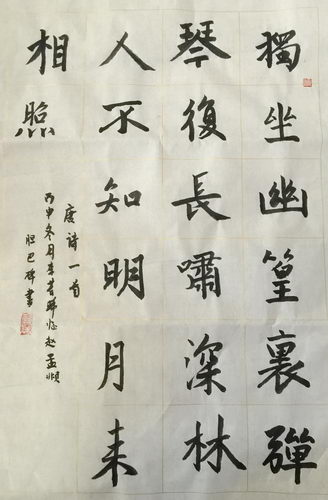 獨坐幽篁裏彈
琴復長嘯深林
人不知明月来
相照
唐詩一首
丙申冬月李茗畊临赵孟頫
胆巴碑書